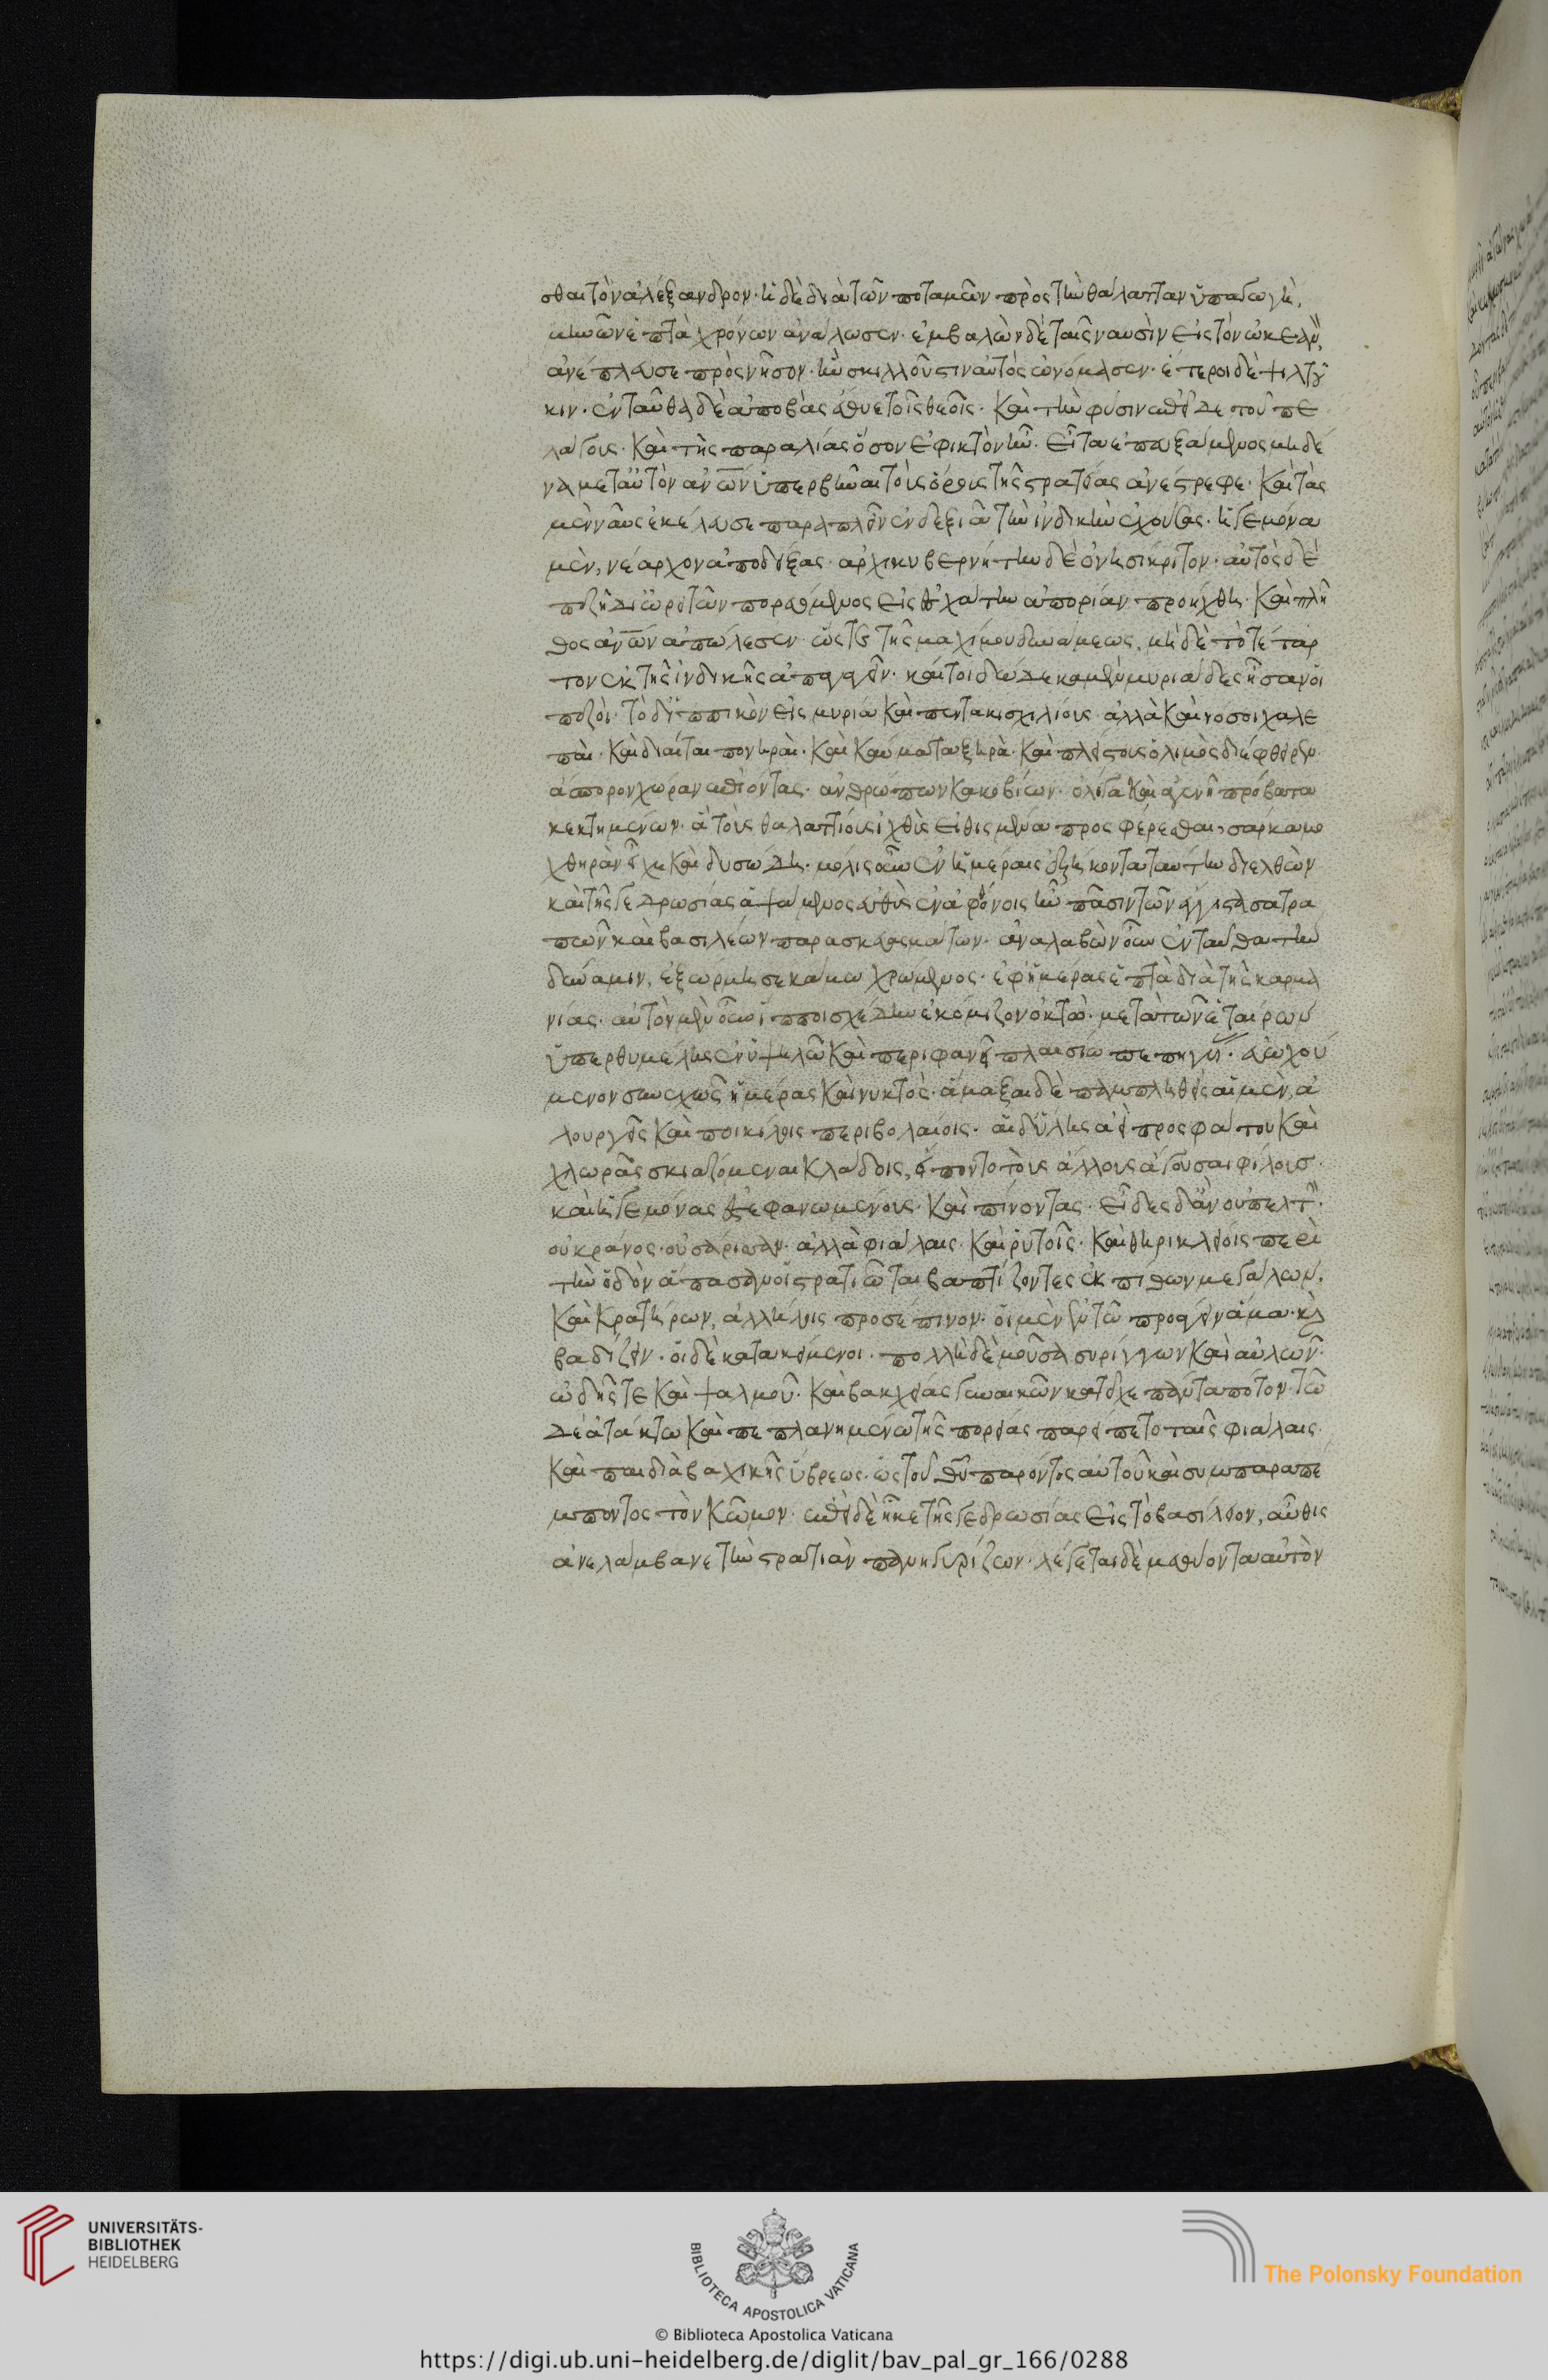 σθαι τὸν ἀλέξανδρον· ἡ δὲ διὰ τῶν ποταμῶν πρὸς τὴν θάλατταν ὑπαγωγὴ,
μηνῶν ἑπτὰ χρόνων ἀνάλωσεν· ἐμβαλὼν δὲ ταῖς ναυσὶν εἰς τὸν ὠκεανὸν,
ἀνέπλευσε πρὸς νῆσον· ἣν σκιλλοῦστιν αὐτὸς ὠνόμασεν· ἕτεροι δὲ ψιλτοῦ
κιν· ἐνταῦθα δὲ ἀποβὰς ἔθυε τοῖς θεοῖς· καὶ τὴν φύσιν ἐπεῖδε τοῦ πε
λάγους· καὶ τῆς παραλίας ὅσον ἐφικτὸν ἦν· εἶτα ἐπευξάμενος μηδέ
να μετ αὐτὸν ἀνων ὑπερβῆναι τοὺς ὅρους τῆς στρατείας ἀνέστρεφε· καὶ τὰς
μὲν ναῦς ἐκέλευσε παραπλεῖν ἐν δεξιᾶ τὴν ἰνδικὴν ἐχούσας· ἡγεμόνα
μὲν, νέαρχον ἀποδείξας· ἀρχικυβερνήτην δὲ ὀνησίκριτον· αὐτὸς δὲ
πεζῇ δι ὠρειτῶν πορευόμενος εἰς ἐσχάτην ἀπορίαν προήχθη· καὶ πλῆ
θος ἀνων ἀπώλεσεν· ὥστε τῆς μαχίμου δυνάμεως, μὴ δὲ τὸ τέταρ
τον ἐκ τῆς ἰνδικῆς ἀπαγαγεῖν· καίτοι δώδεκα μὲν μυριάδες ἦσαν οἱ
πεζοὶ· τὸ δ ἱππικὸν εἰς μυρίους καὶ πεντακισχιλίους· ἀλλὰ καὶ νόσοι χαλε
παὶ· καὶ δίαιται πονηραὶ· καὶ καύματα ξηρὰ· καὶ πλείστους ὁ λιμὸς διέφθειρεν
ἄσπορον χώραν ἐπιόντας· ἀνθρώπων κακοβίων· ὀλίγα καὶ ἀγενῆ πρόβατα
κεκτημένων· ἃ τοὺς θαλαττίους ἰχθῦς εἰθισμένα προσφέρεσθαι, σάρκα μο
χθηρὰν εἶχε καὶ δυσώδη· μόλις οὖν ἐν ἡμέραις ἑξήκοντα ταύτην διελθὼν
καὶ τῆς γεδρωσίας ἁψάμενος εὐθὺς ἐν ἀφθόνοις ἦν πᾶσιν τῶν ἔγγιστα σατρα
πῶν καὶ βασιλέων παρασκευασμάτων· ἀναλαβὼν οὖν ἐνταῦθα τὴν
δύναμιν, ἐξώρμησε κώμω χρώμενος· ἐφ ἡμέρας ἑπτὰ διὰ τῆς καρμα
νίας· αὐτὸν μὲν οὖν ἵπποι σχέδην ἐκόμιζον ὀκτὼ· μετὰ τῶν ἑταίρων
ὑπὲρ θυμέλης ἐν ὑψηλῶ καὶ περιφανεῖ πλαισίω πεπηγυίας· εὐωχού
μενον συνεχῶς ἡμέρας καὶ νυκτὸς· ἅμαξαι δὲ παμπληθεῖς αἱ μὲν, ἁ
λουργεῖς καὶ ποικίλοις περιβολαίοις· αἱ δ ὕλης ἀεὶ προσφάτου καὶ
χλωρᾶς σκιαζόμεναι κλάδοις, εἵποντο τοὺς ἄλλους ἄγουσαι φίλους
καὶ ἡγεμόνας ἐστεφανωμένους· καὶ πίνοντας· εἶδες δ ἂν οὐ πέλτην·
οὐ κράνος· οὐ σάρισαν· ἀλλὰ φιάλαις· καὶ ῥυτοῖς· καὶ θηρικλείοις περὶ
τὴν ὁδὸν ἅπασαν οἱ στρατιῶται βαπτίζοντες ἐκ πίθων μεγάλων,
καὶ κρατήρων, ἀλλήλοις προσέπινον· οἱ μὲν ἐν τῶ προάγειν ἅμα· καὶ
βαδίζειν· οἱ δὲ κατακείμενοι· πολλὴ δὲ μοῦσα συρίγγων καὶ αὐλῶν·
ὠδῆς τε καὶ ψαλμοῦ· καὶ βακχείας γυναικῶν κατεῖχε πάντα τόπον· τῶ
δὲ ἀτάκτω καὶ πεπλανημένω τῆς πορείας παρείπετο ταῖς φιάλαις
καὶ παιδιὰ βαχικῆς ὕβρεως· ὡς τοῦ θυ παρόντος αὐτοῦ καὶ συμπαραπέ
μποντος τὸν κῶμον· ἐπεὶ δὲ ἧκε τῆς γεδρωσίας εἰς τὸ βασίλειον, αὖθις
ἀνελάμβανε τὴν στρατιὰν πανηγυρίζων· λέγεται δὲ μεθύοντα αὐτὸν
UNIVERSITÄTS-
BIBLIOTHEK
HEIDELBERG
BIBLIOTECA APOSTOLICA VATICANA
The Polonsky Foundation
© Biblioteca Apostolica Vaticana
https://digi.ub.uni-heidelberg.de/diglit/bav_pal_gr_166/0288